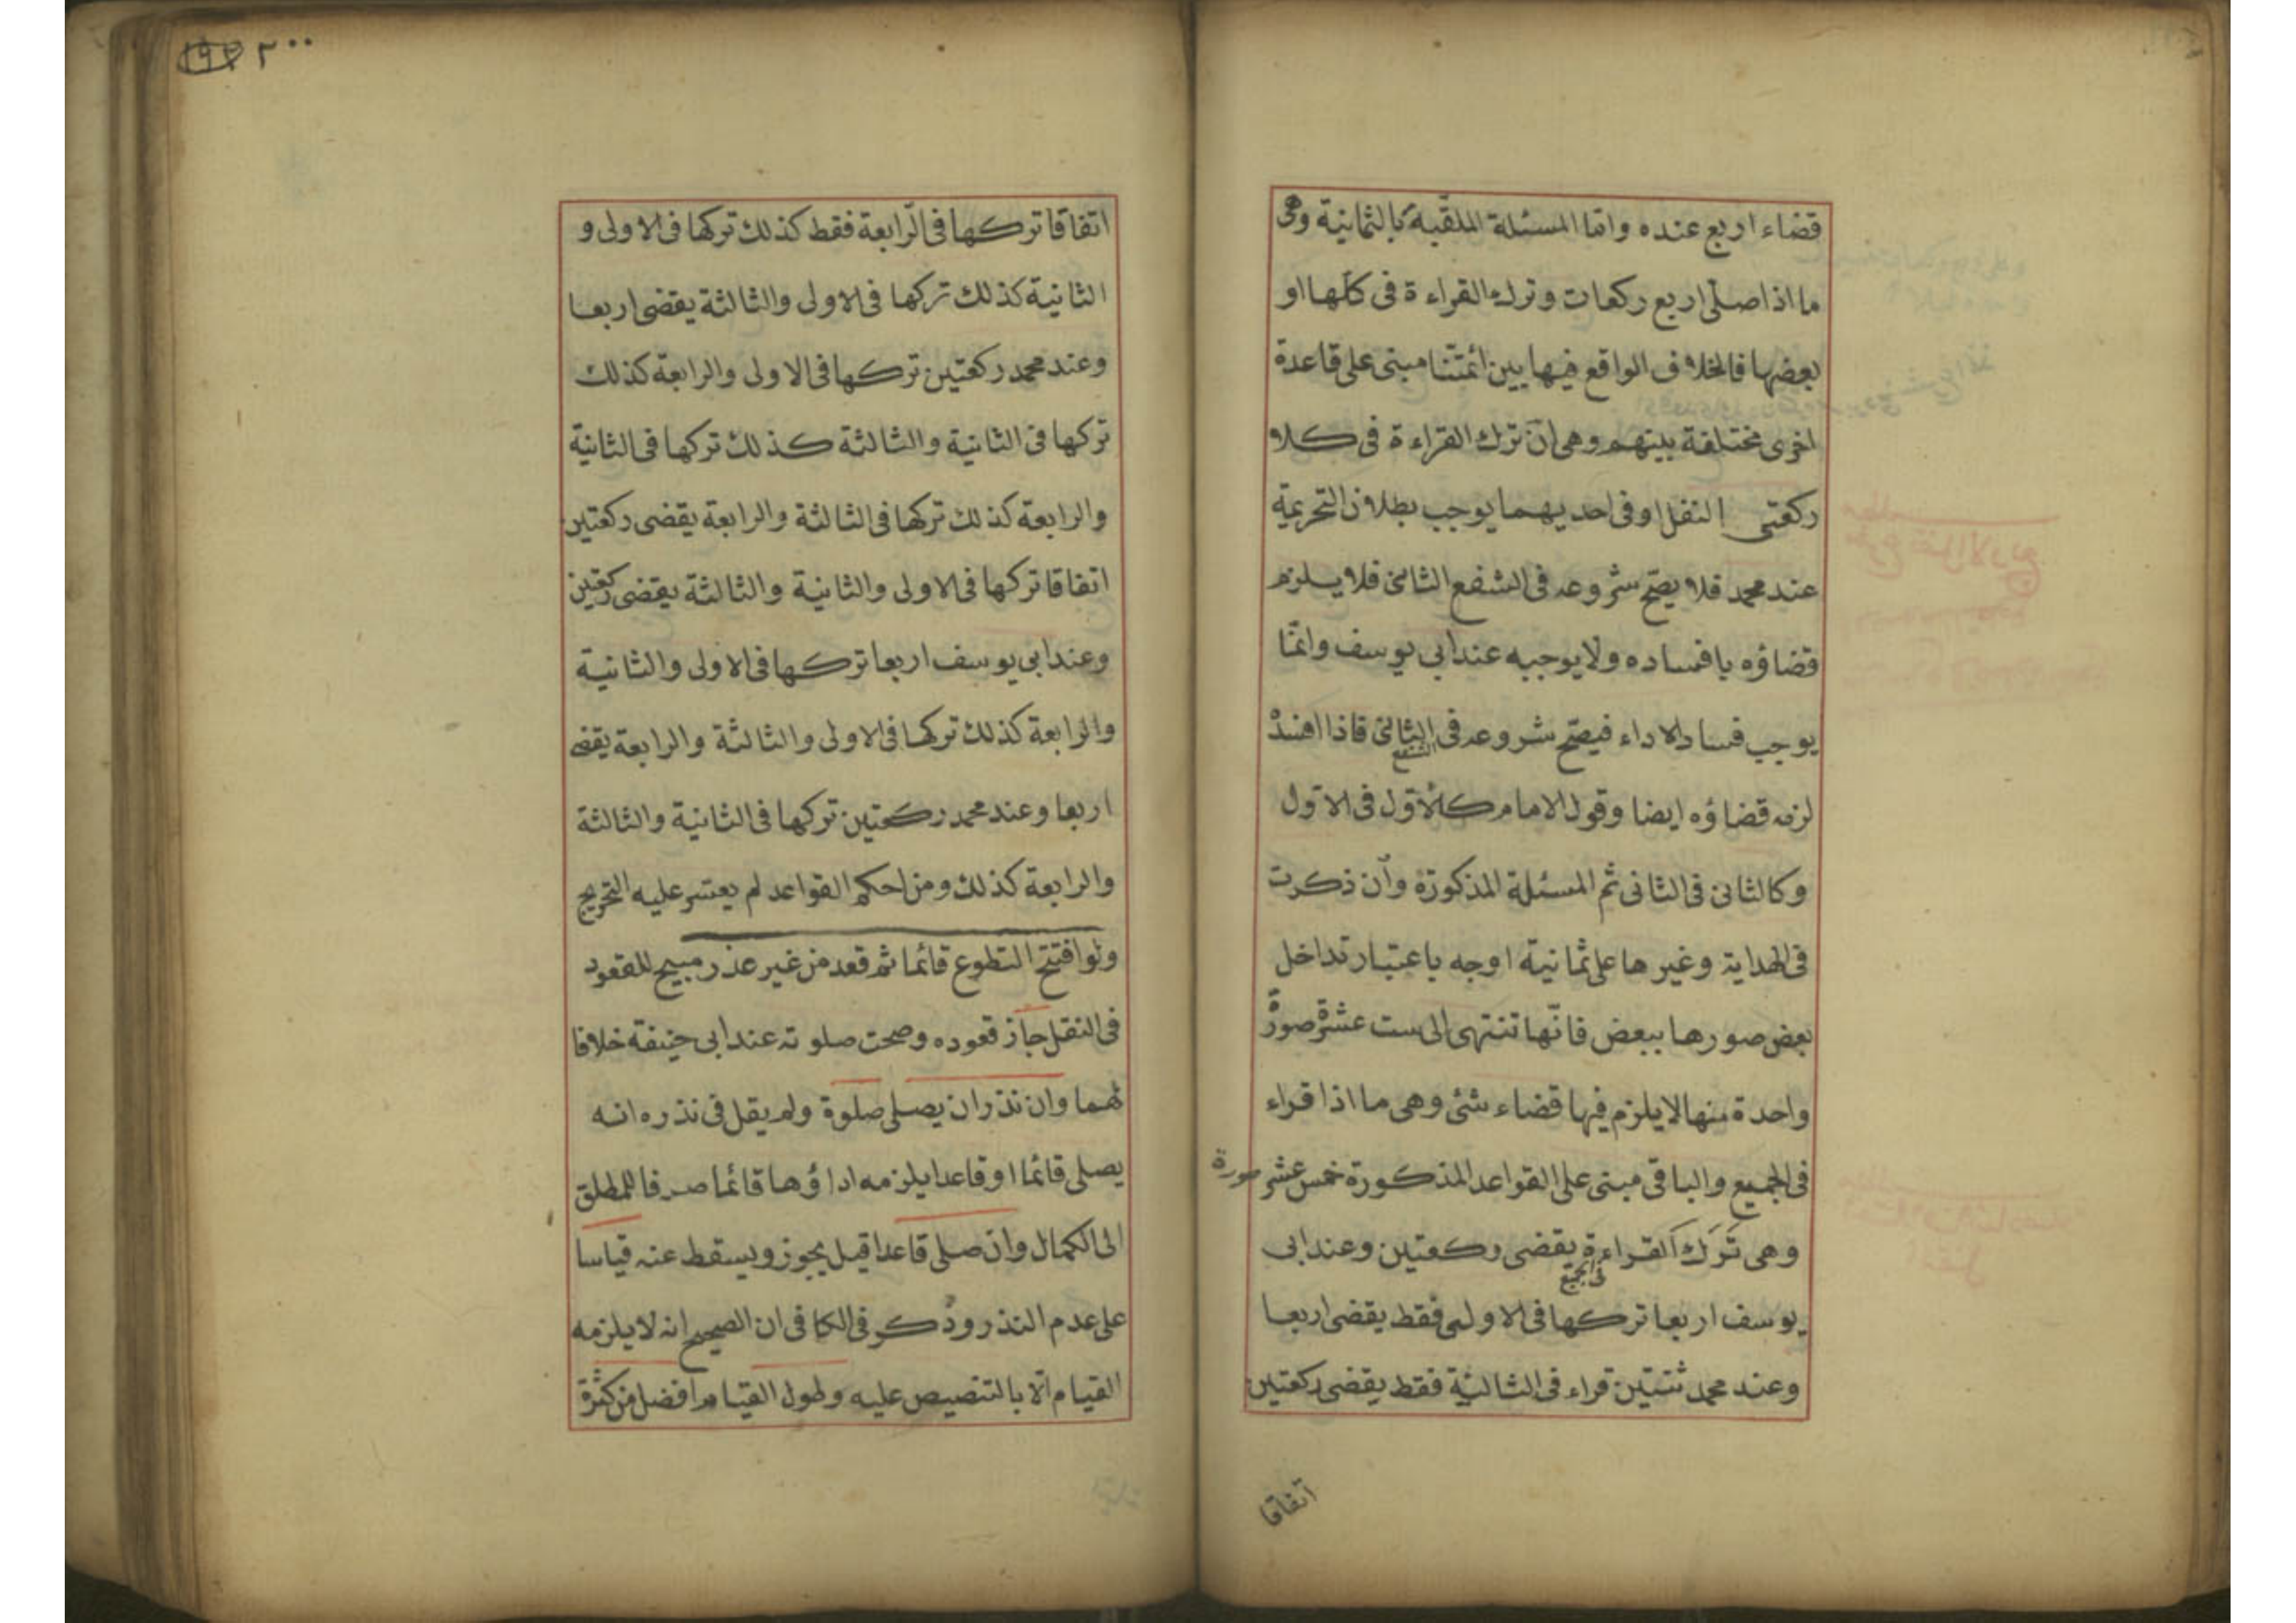 قضاء اربع عنده واما المسئلة الملقبة بالثمانية وهى
ما اذا صلّى اربع ركعات وترك القراءة فى كلّها او
بعضها فالخلاف الواقع فيها بين ائمّتنا مبنى على قاعدة
اخرى مختلفة بينهم وهى انّ ترك القراءة فى كلا
ركعتى النفل او فى احديهما يوجب بطلان التحريمة
عند محمد فلا يصحّ شروعه فى الشفع الثانى فلا يلزم
قضاؤه بافساده ولا يوجبه عند ابى يوسف وانّما
يوجب فساد الاداء فيصحّ شروعه فى الثانى فاذا افسدْ
الشفع
لزمه قضاؤه ايضا وقول الامام كالاوّل فى الاوّل
وكالثانى فى الثانى ثم المسئلة المذكورة وان ذكرت
فى الهداية وغيرها على ثمانية اوجه باعتبار تداخل
بعض صورها ببعض فانّها تنتهى الى ست عشرة صورة
واحدة منها لا يلزم فيها قضاء شئ وهى ما اذا قراء
فى الجميع والباقى مبنى على القواعد المذكورة خمس عشر صورة
وهى تَرَك القراءة يقضى ركعتين وعند ابى
فى الجميع
يوسف اربعا تركها فى الاولى فقط يقضى اربعا
وعند محمد ثنتين قراء فى الثالثة فقط يقضى ركعتين
اتفاقا
٢٠٠
١٩٢
اتفاقا تركها فى الرّابعة فقط كذلك تركها فى الاولى و
الثانية كذلك تركها فى الاولى والثالثة يقضى اربعا
وعند محمد ركعتين تركها فى الاولى والرابعة كذلك
تركها فى الثانية والثالثة كذلك تركها فى الثانية
والرابعة كذلك تركها فى الثالثة والرابعة يقضى ركعتين
اتفاقا تركها فى الاولى والثانية والثالثة يقضى ركعتين
وعند ابى يوسف اربعا تركها فى الاولى والثانية
والرابعة كذلك تركها فى الاولى والثالثة والرابعة يقضى
اربعا وعند محمد ركعتين تركها فى الثانية والثالثة
والرابعة كذلك ومن احكم القواعد لم يعتسر عليه التخريج
ولو افتتح التطوع قائما ثم قعد من غير عذر مبيح للقعود
فى النفل جاز قعوده وصحت صلوته عند ابى حنيفة خلافا
لهما وان نذر ان يصلى صلوة ولم يقل فى نذره انه
يصلى قائما او قاعدا يلزمه اداؤها قائما صرفا للمطلق
الى الكمال وان صلى قاعدا قيل يجوز ويسقط عنه قياسا
على عدم النذر وذكر فى الكافى ان الصحيح انه لا يلزمه
القيام الّا بالتنصيص عليه وطول القيام افضل من كثرة